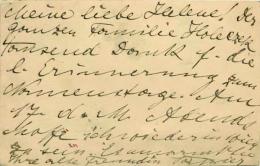 Meine liebe Helene! Der
ganzen Familie
tausend Dank f. die
l. Erinnerung zum
Namenstage. Am
17. d. M. Abends
hoffe ich wieder in Wien
zu sein
Ihre alte Freundin